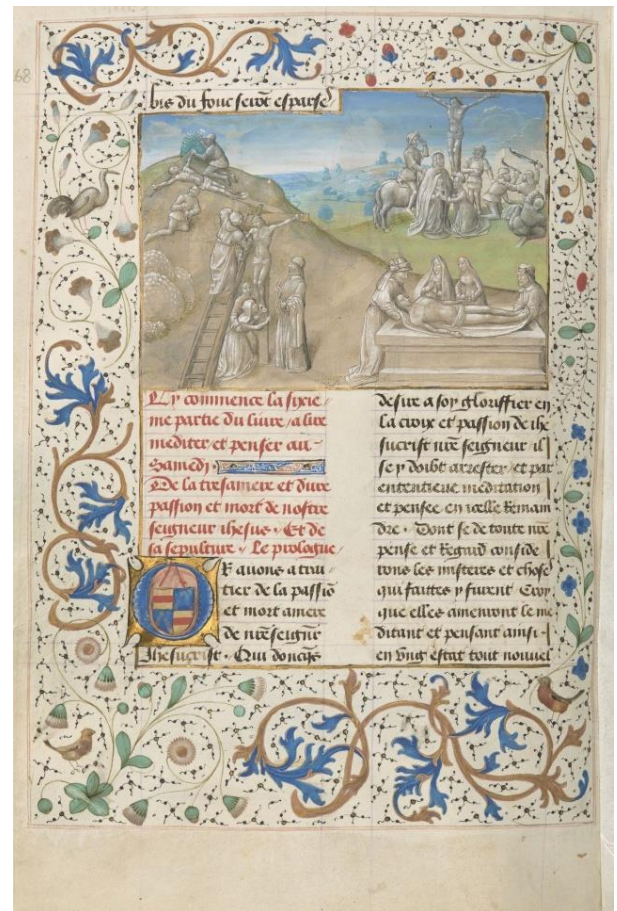 68
bis du fouc serōt esparse
Cy commence la sixie
me partie du liure / a lire
mediter et penser au
Samedi .
De la tresamere et dure
passion et mort de nostre
seigneur ihesus . Et de
sa sepulture . Le prologue
OR auons a trai
tier de la passiō
et mort amere
de nr̄e seignr̄
Ihesucrist . Qui doncq̄s
desire a soy gloriffier en
la croix et passion de ihe
sucrist nr̄e seigneur il
se y doibt arrester / et par
ententieue meditation
et pensee en icelle Remain
dre . Dont se de toute nr̄e
pense et Regard conside
rons les misteres et chose
qui faittes y furent Croy
que elles amenront le me
ditant et pensant ainsi
en vng estat tout nouuel